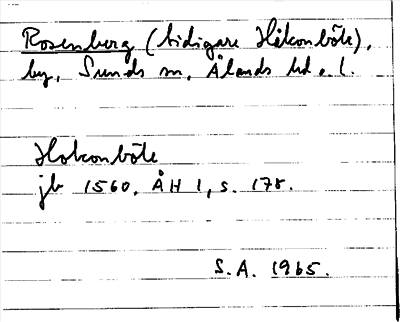 Rosenberg (tidigare Håkonböle),
by, Sunds sn, Ålands hd o. l.
Hokonböle
jb 1560. ÅH 1, s. 178.
S.A. 1965.